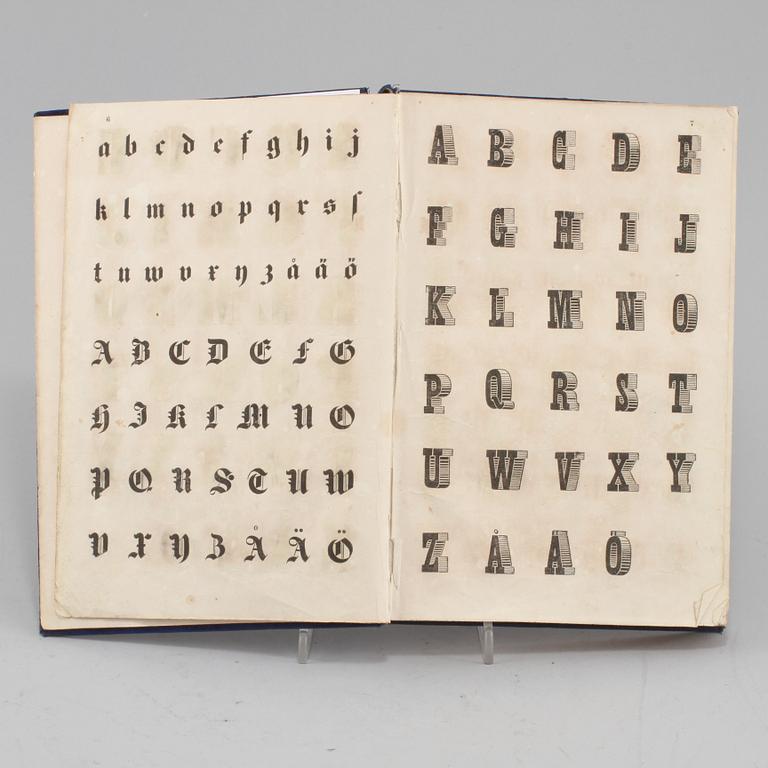 6
a b c d e f g h i j
k l m n o p q r s ſ
t u w v x y z å ä ö
A B C D E F G
H I K L M N O
P Q R S T U W
V X Y Z Å Ä Ö
7
A B C D E
F G H I J
K L M N O
P Q R S T
U W V X Y
Z Å Ä Ö